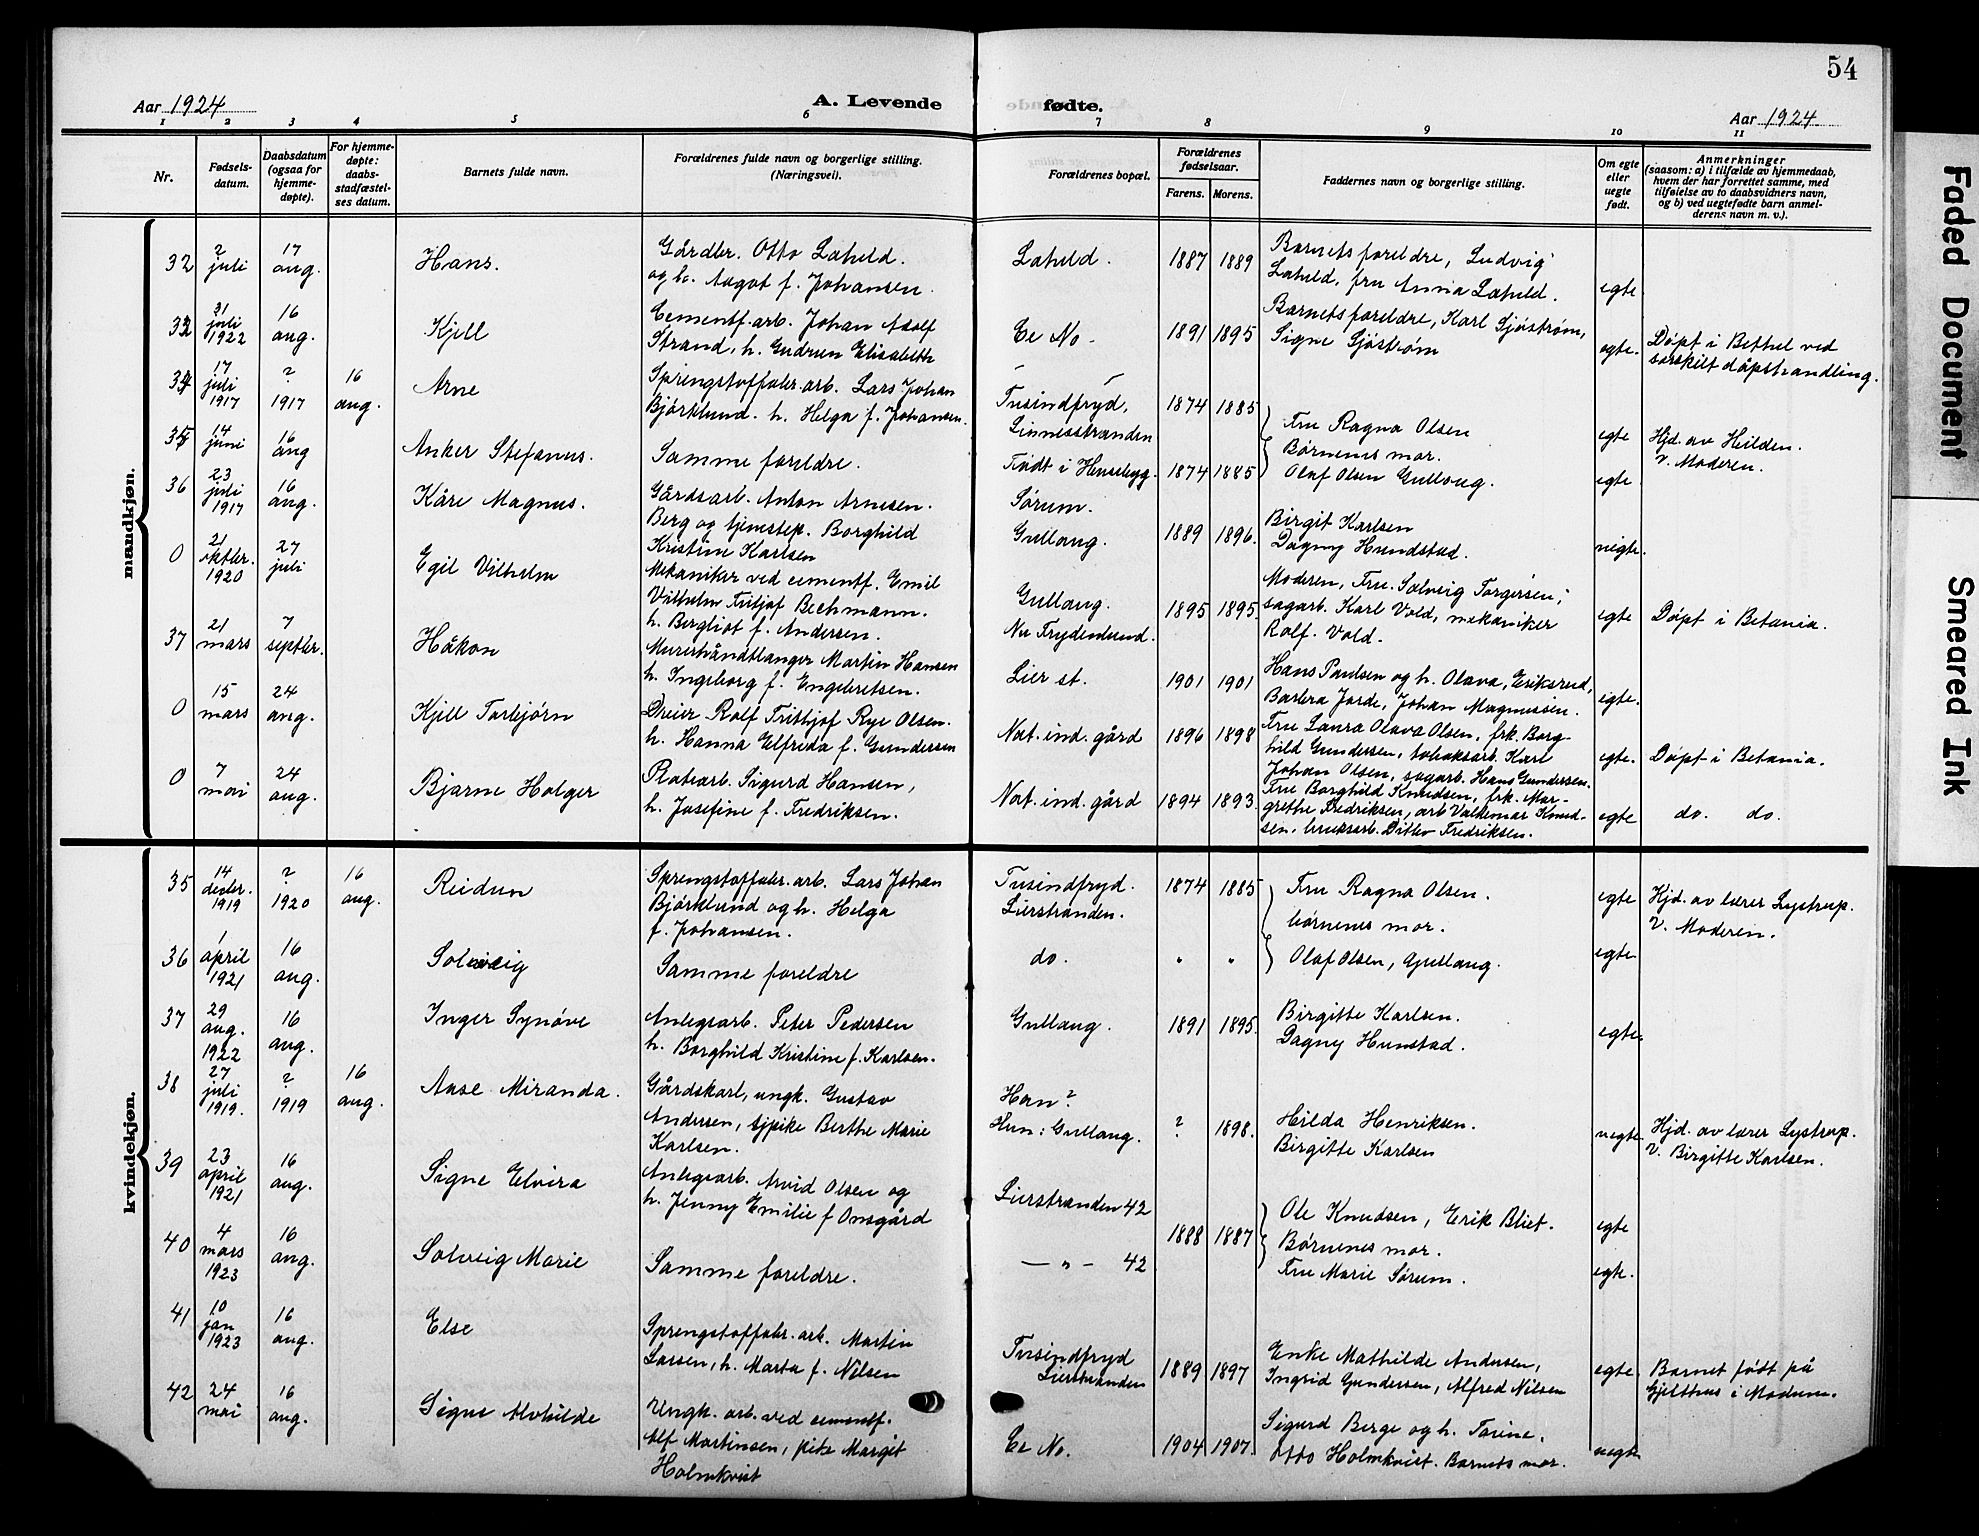 54
Aar 1924
A. Levende
fødte.
Aar 1924.
1 2 3 4 5 6 7 8 9 10 11
Nr.
Fødsels-
datum.
Daabsdatum
(ogsaa for
hjemme-
døpte).
For hjemme-
døpte:
daabs-
stadfæstel-
ses datum.
Barnets fulde navn.
Forældrenes fulde navn og borgerlige stilling.
(Næringsvei).
Forældrenes bopæl.
Forældrenes
fødselsaar.
Farens. Morens.
Faddernes navn og borgerlige stilling.
Om egte
eller
uegte
født.
Anmerkninger
(saasom: a) i tilfælde av hjemmedaab,
hvem der har forrettet samme, med
tilføielse av to daabsvidners navn,
og b) ved uegtefødte barn anmel-
derens navn m. v.).
mandkjøn.
32
2
juli
17
aug.
Hans.
Gårdbr. Otto Laheld.
og h. Aagot f. Johansen.
Laheld.
1887 1889
Barnets foreldre, Ludvig
Laheld, fru Anna Laheld.
egte
33
31
juli
1922
16
aug.
Kjell
Cementf. arb. Johan Adolf
Strand, h. Gudrun Elisabeth
Ee No.
1891 1895
Barnets foreldre, Karl Sjöstrøm,
Signe Sjöstrøm
egte.
Døpt i Bethel ved
særskilt dåpshandling.
34
17
juli
1917
?
1917
16
aug.
Arne
Sprengstoffabr. arb. Lars Johan
Bjørklund. h. Helga f. Johansen.
Tusindfryd,
Linnesstranden
1874 1885
Fru Ragna Olsen
Børnenes mor.
egte
Hjd. av Heilden.
v. Moderen.
35
14
juni
16
aug
Anker Stefanus.
Samme foreldre.
Født i
1874 1885
Olaf Olsen Gullaug.
egte
36
23
juli
1917
16
aug.
Kåre Magnus.
Gårdsarb. Anton Arnesen.
Berg og tjenstep. Borghild
Kristine Karlsen
Sørum.
Gullaug.
1889 1896.
Birgit Karlsen
Dagny Hundstad.
uegte.
0
21
oktbr.
1920
27
juli
Egil Vilhelm
Mekaniker ved cementf. Emil
Vilhelm Fritjof Bechmann.
h. Bergliot f. Andersen.
Gullaug.
Nu Frydenlund.
1895 1895
Moderen, Fru. Solveig Torgersen,
sagarb. Karl Vold, mekaniker
Rolf. Vold.
egte
Døpt i Betania.
37
21
mars
7
septbr.
Håkon
Murerhåndtlanger Martin Hansen
h. Ingeborg f. Engebretsen.
Lier st.
1901 1901
Hans Paulsen og h. Olava, Eriksrud,
Barbra Jorde, Johan Magnussen.
egte.
0
15
mars
24
aug.
Kjell Torbjørn
Dreier Rolf Fritbjof Rye Olsen.
h. Hanna Elfreda f. Gundersen
Nat. ind. gård
1896 1898
Fru Laura Olava Olsen, frk. Borg-
hild Gundersen, tobaksarb. Karl
Johan Olsen, sagarb. Hans Gundersen.
egte.
Døpt i Betania.
0
7
mai
24
aug.
Bjarne Holger
Platearb. Sigurd Hansen,
h. Josefine f. Fredriksen.
Nat. ind. gård
1894 1893.
Fru Borghild Knudsen, frk. Mar-
grethe Fredriksen, arb Valdemar Knud-
sen, bruksarb. Ditlev Fredriksen.
egte
do. do.
kvindekjøn.
35
14
desbr.
1919
?
1920
16
aug.
Reidun
Sprengstoffabr. arb. Lars Johan
Bjørklund og h. Helga
f. Johansen.
Tusindfryd.
Lierstranden.
1874 1885
Fru Ragna Olsen.
børnenes mor.
egte
Hjd. av lærer Lystrup.
V. Moderen.
36
1
april
1921
16
aug.
Solveig
Samme foreldre
do.
" "
Olaf Olsen, Gullaug.
egte
37
29
aug.
1922
16
aug.
Inger Synöve
Anlegsarb. Peter Pedersen
h. Borghild Kristine f. Karlsen.
Gullaug.
1891 1895.
Birgitte Karlsen.
Dagny Hunstad.
egte.
38
27
juli
1919.
?
1919
16
aug.
Aase Miranda.
Gårdskarl, ungk. Gustav
Andersen, tjpike Berthe Marie
Karlsen.
Han?
Hun: Gullaug.
? 1898.
Hilda Henriksen.
Birgitte Karlsen
uegte.
Hjd. av lærer Lystrup.
V. Birgitte Karlsen.
39
23
april
1921
16
aug.
Signe Elvira
Anlegsarb. Arvid Olsen og
h. Jenny Emilie f Onsgård
Lierstranden 42
1888 1887
Ole Knudsen, Erik Bliet.
Børnenes mor.
Fru Marie Sørum.
egte
40
4
mars
1923
16
aug.
Solveig Marie
Samme foreldre.
— " — 42
egte.
41
10
jan
1923
16
aug.
Else
Sprengstoffabr. arb. Martin
Larsen, h. Marta f. Nilsen
Tusindfryd
Lierstranden
1889 1897
Enke Mathilde Andersen,
Ingrid Gundersen, Alfred Nilsen
egte.
Barnet født på
Gjelthus i Modum.
42
24
mai
16
aug.
Signe Alvhilde
Ungk. arb. ved cementf.
Alf Martinsen, pike Margit
Holmkvist
Ee No.
1904 1907.
Sigurd Berge og h. Torine.
Otto Holmkvist. Barnets mor.
uegte
Faded Document
Smeared Ink